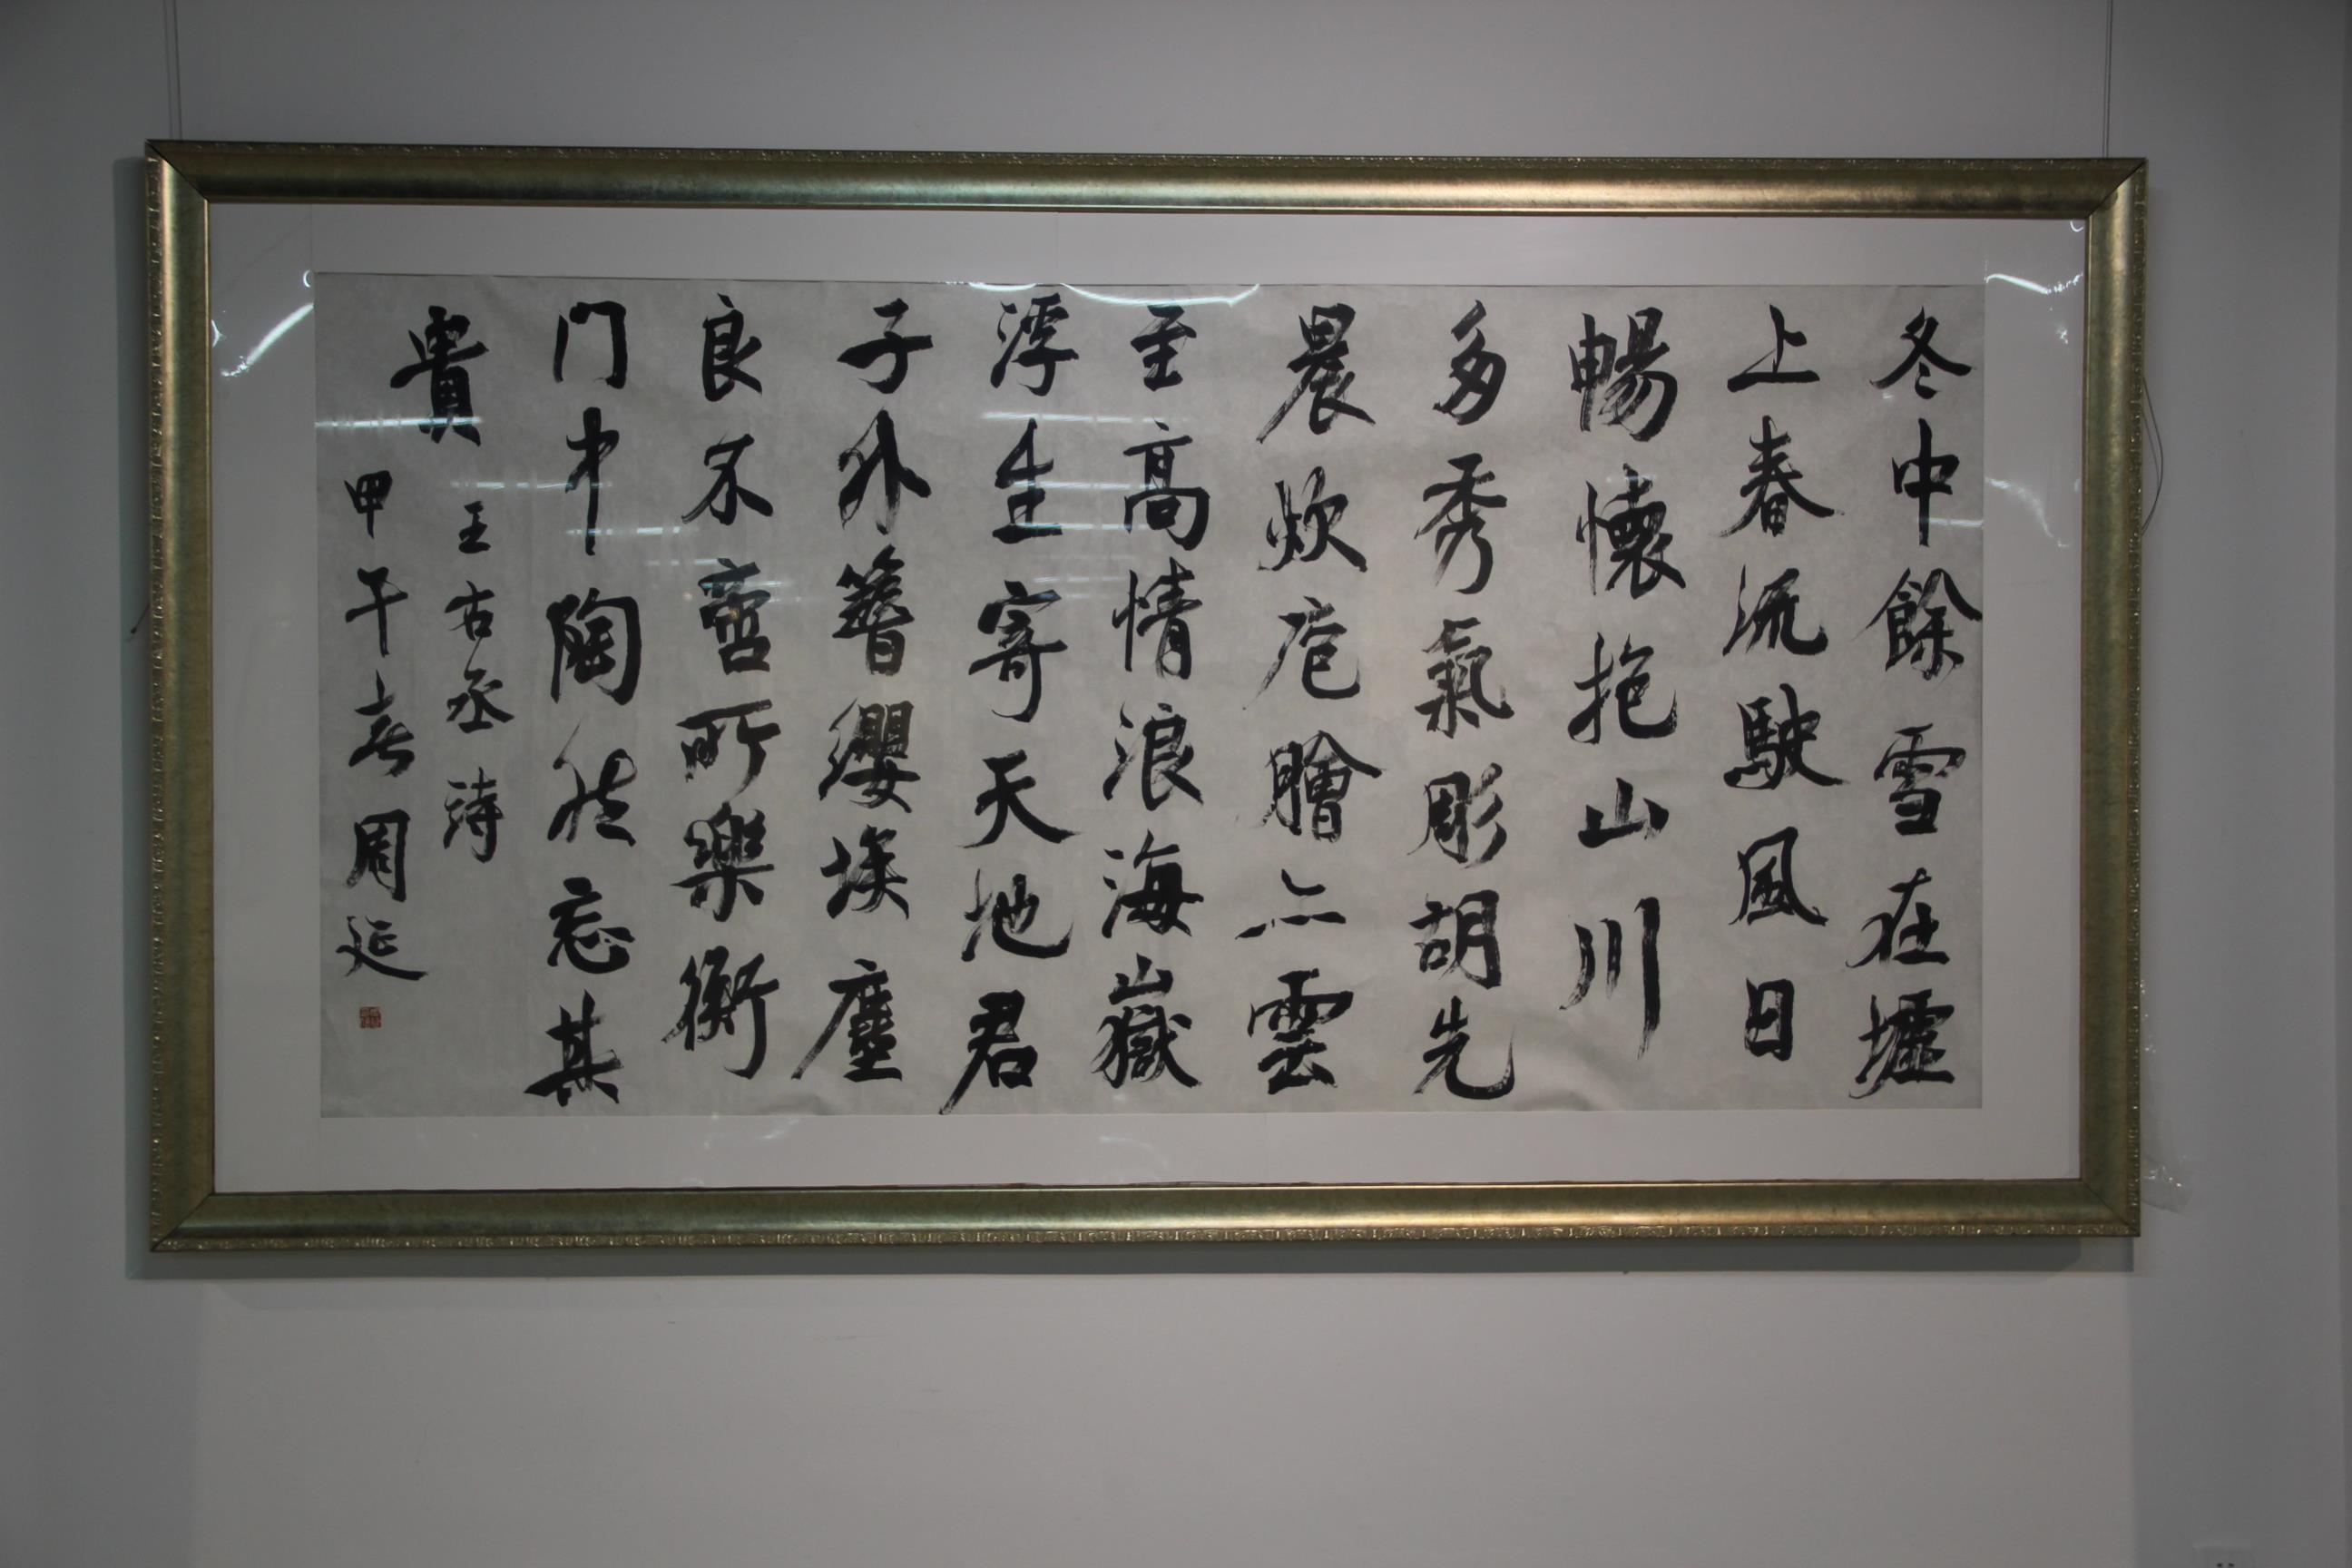 冬中餘雪在墟
上春流駛風日
暢懷抱山川
多秀氣彫胡先
晨炊庖膾亦雲
至高情浪海嶽
浮生寄天地君
子外簪纓埃塵
良不啻所樂衡
门中陶然忘其
貴
王右丞詩
甲午春周延